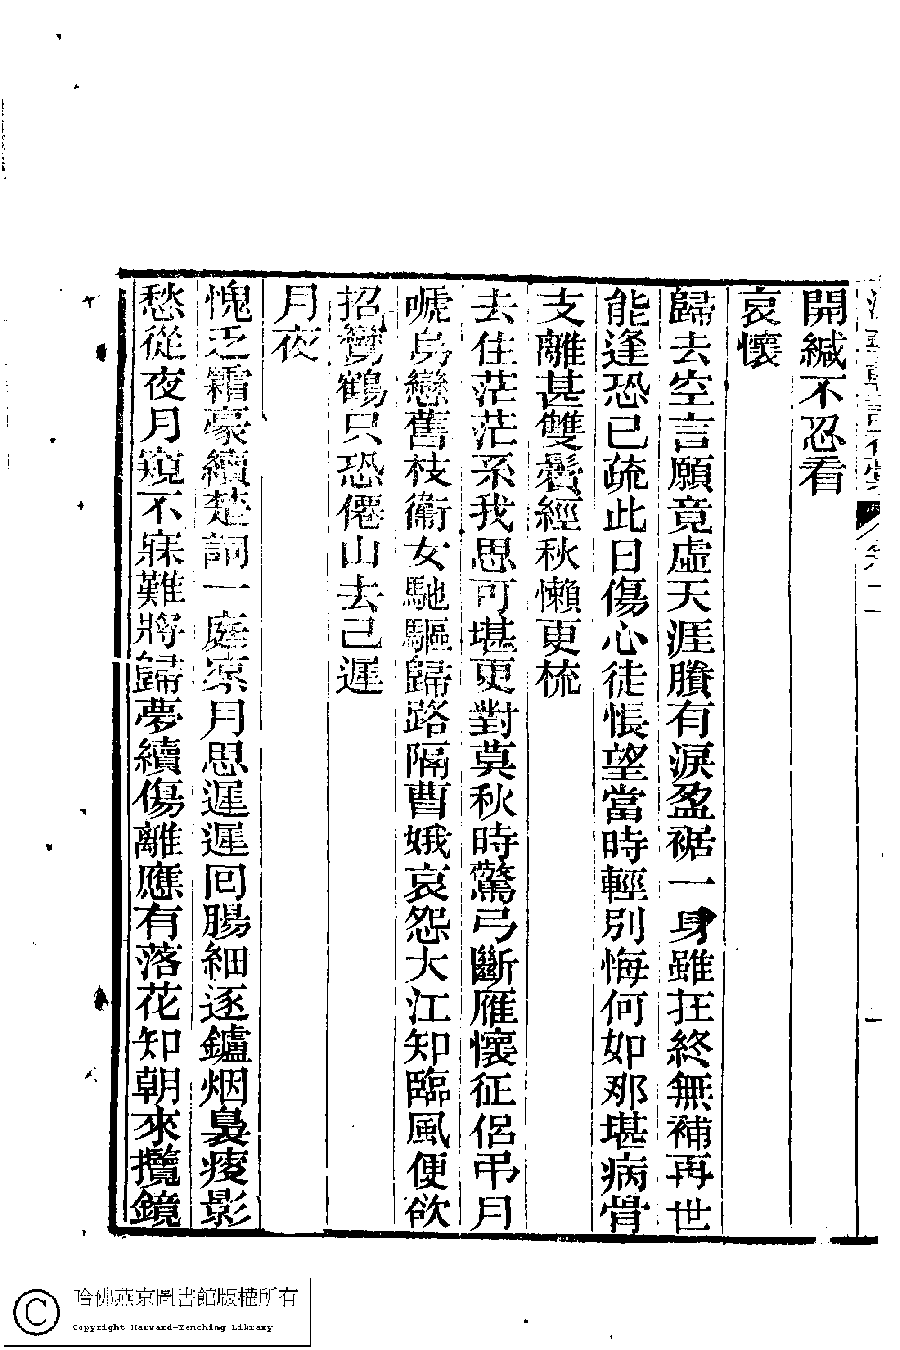 卷二
開緘不忍看
哀懷
歸去空言願竟虛天涯賸有淚盈裾一身雖在終無補再世
能逢恐已疏此日傷心徒悵望當時輕別悔何如那堪病骨
支離甚雙鬢經秋懶更梳
去住茫茫系我思可堪更對莫秋時驚弓斷雁懷征侶弔月
嗁烏戀舊枝衞女馳驅歸路隔曹娥哀怨大江知臨風便欲
招鸞鶴只恐僊山去已遲
月夜
愧乏霜豪續楚詞一庭凉月思遲遲回腸細逐鑪烟裊瘦影
愁從夜月窺不寐難將歸夢續傷離應有落花知朝來攬鏡
哈佛燕京圖書館版權所有
Copyright Harvard-Yenching Library